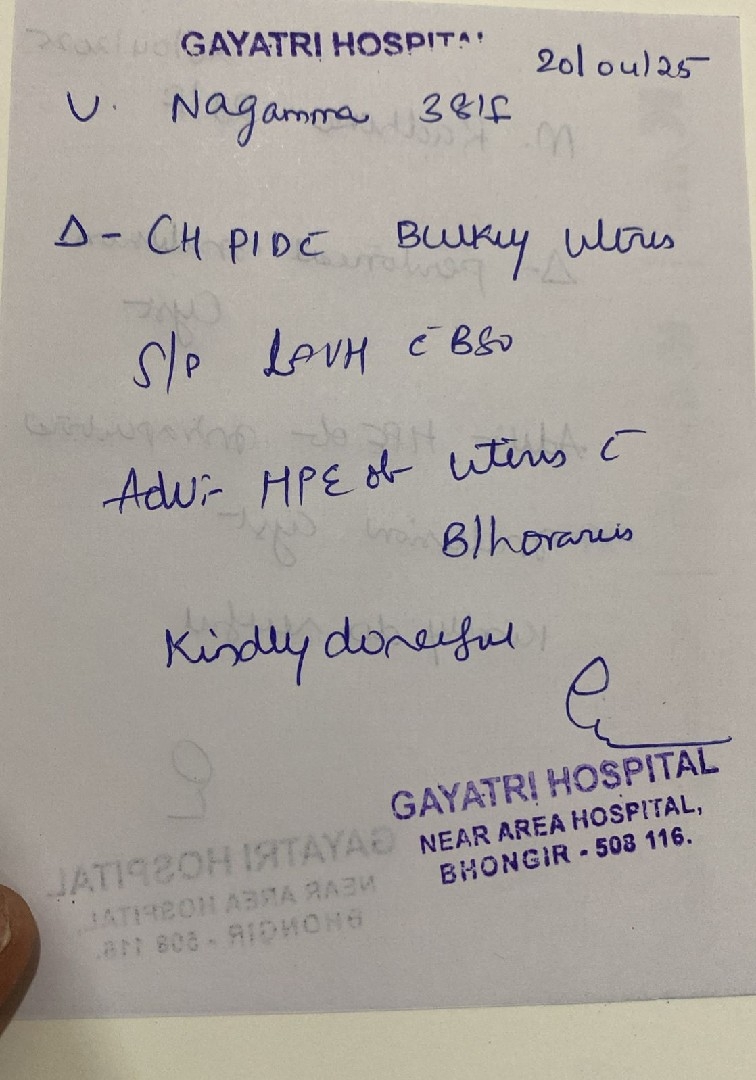 GAYATRI HOSPITAL
20/04/25
V. Nagamma 38/F
Δ- CH PID c̄ Bulky uterus
S/P LAVH c̄ BSO
Adv:- HPE of uterus c̄
B/L ovaries
Kindly do needful
GAYATRI HOSPITAL
NEAR AREA HOSPITAL,
BHONGIR - 508 116.